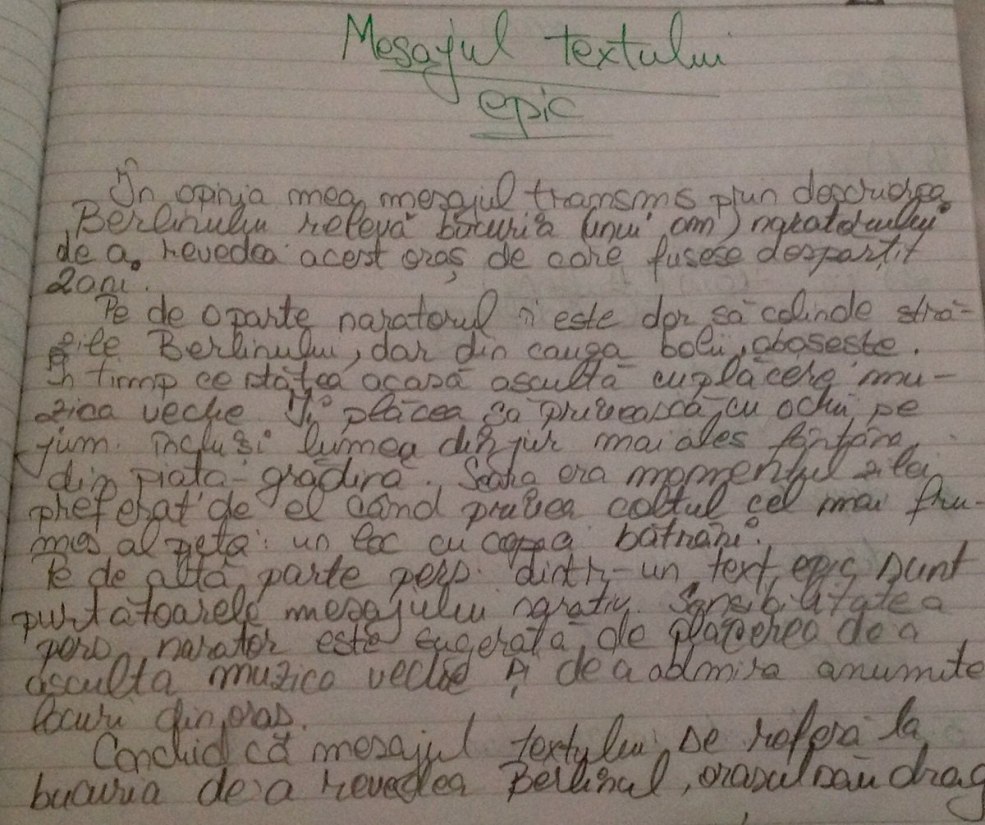 Mesajul textului
epic
În opinia mea mesajul transmis prin descrierea
Berlinului relevă bucuria unui om, naratorului
de a revedea acest oraș de care fusese despărțit
2 ani.
Pe de o parte naratorul îi este dor să colinde stră-
zile Berlinului, dar din cauza bolii, obosește.
În timp ce stătea acasă ascultă cu plăcere mu-
zica veche. Îi plăcea să privească, cu ochii pe
jum. închiși lumea din jur mai ales fântâna
din piața-grădină. Seara era momentul zilei
preferat de el când privea colțul cel mai fru-
mos al pieței: un loc cu copaci bătrâni.
Pe de altă parte pers. dintr-un text epic sunt
purtătoarele mesajului narativ. Sensibilitatea
pers. narator este sugerată de plăcerea de a
asculta muzica veche și de a admira anumite
locuri din oraș.
Conchid că mesajul textului se referă la
bucuria de a revedea Berlinul, orașul său drag